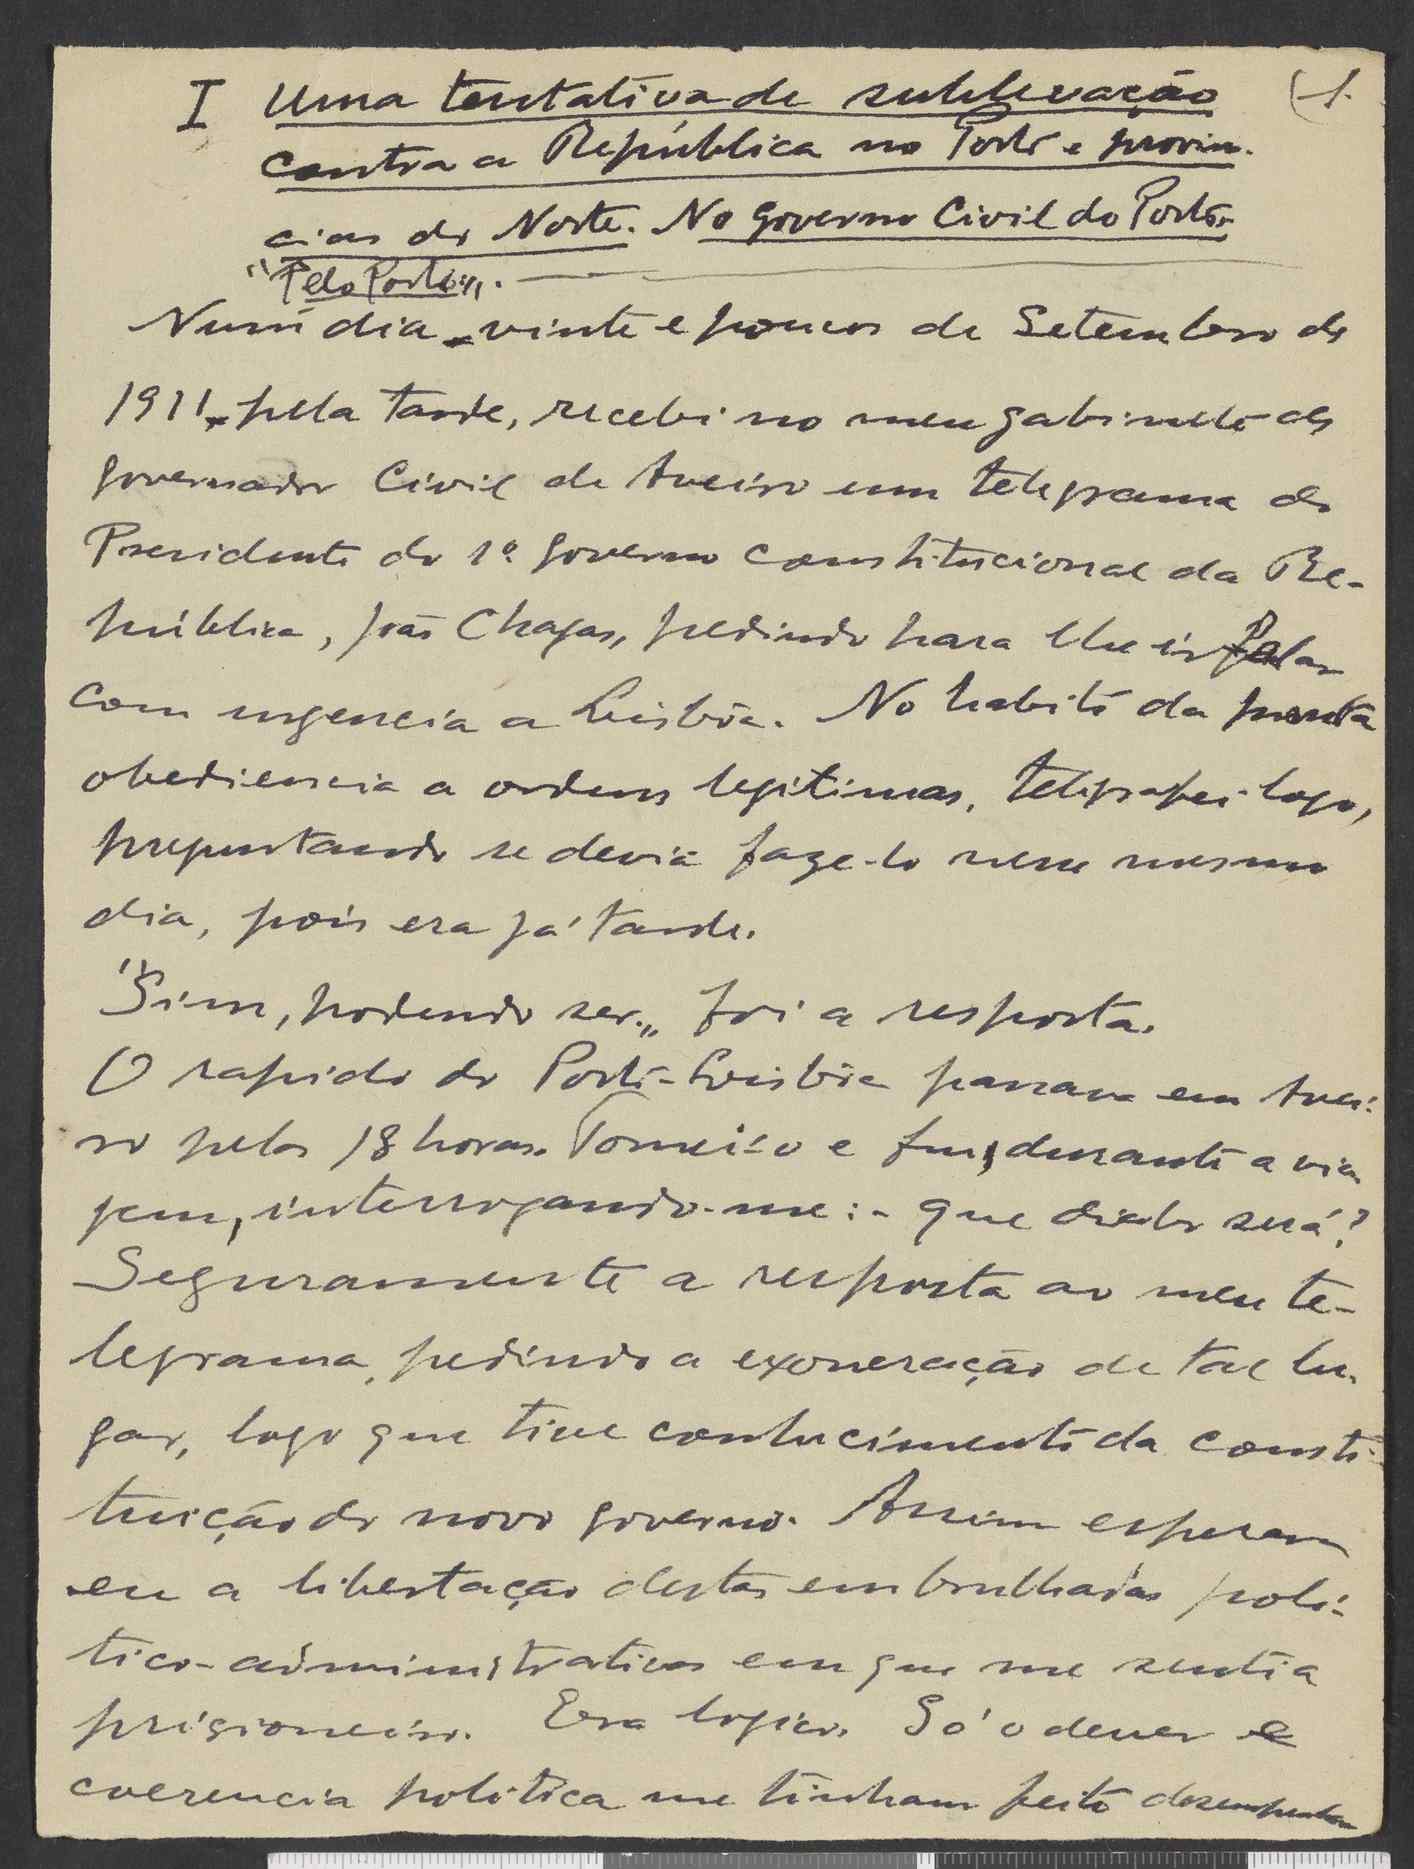 I Uma tentativa de sublevação (1.
contra a República no Porto e provin-
cias do Norte. No Governo Civil do Porto.
"Pelo Porto".
Num dia - vinte e poucos de Setembro de
1911 - pela tarde, recebi no meu gabinete de
governador Civil de Aveiro um telegrama do
Presidente do 1º governo constitucional da Re-
pública, João Chagas, pedindo para lhe ir falar
com urgencia a Lisbôa. No habito da pronta
obediencia a ordens legitimas, telegrafei logo,
preguntando se devia faze-lo nesse mesmo
dia, pois era já tarde.
"Sim, podendo ser." foi a resposta.
O rapido do Porto-Lisbôa passava em Avei-
ro pelas 18 horas. Tomei-o e fui, durante a via
gem, interrogando-me: - que diabo será?
Seguramente a resposta ao meu te-
legrama, pedindo a exoneração de tal lu-
gar, logo que tive conhecimento da consti-
tuição do novo governo. Assim esperava
eu a libertação destas embrulhadas poli-
tico-administrativas em que me sentia
prisioneiro. Era logico. Só o dever e
coerencia politica me tinham feito desempenhar